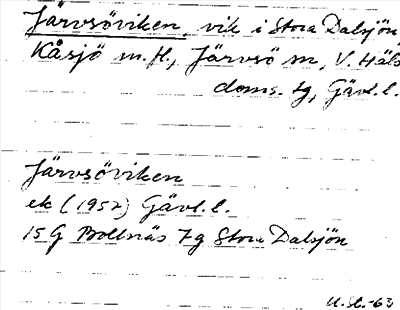 Järvsöviken, vik i Stora Dalsjön,
Kåsjö m.fl., Järvsö sn, V. Häls
doms. tg, Gävl.l.
Järvsöviken
ek (1952) Gävl.l.
15G Bollnäs 7g Stora Dalsjön
U.St.-63